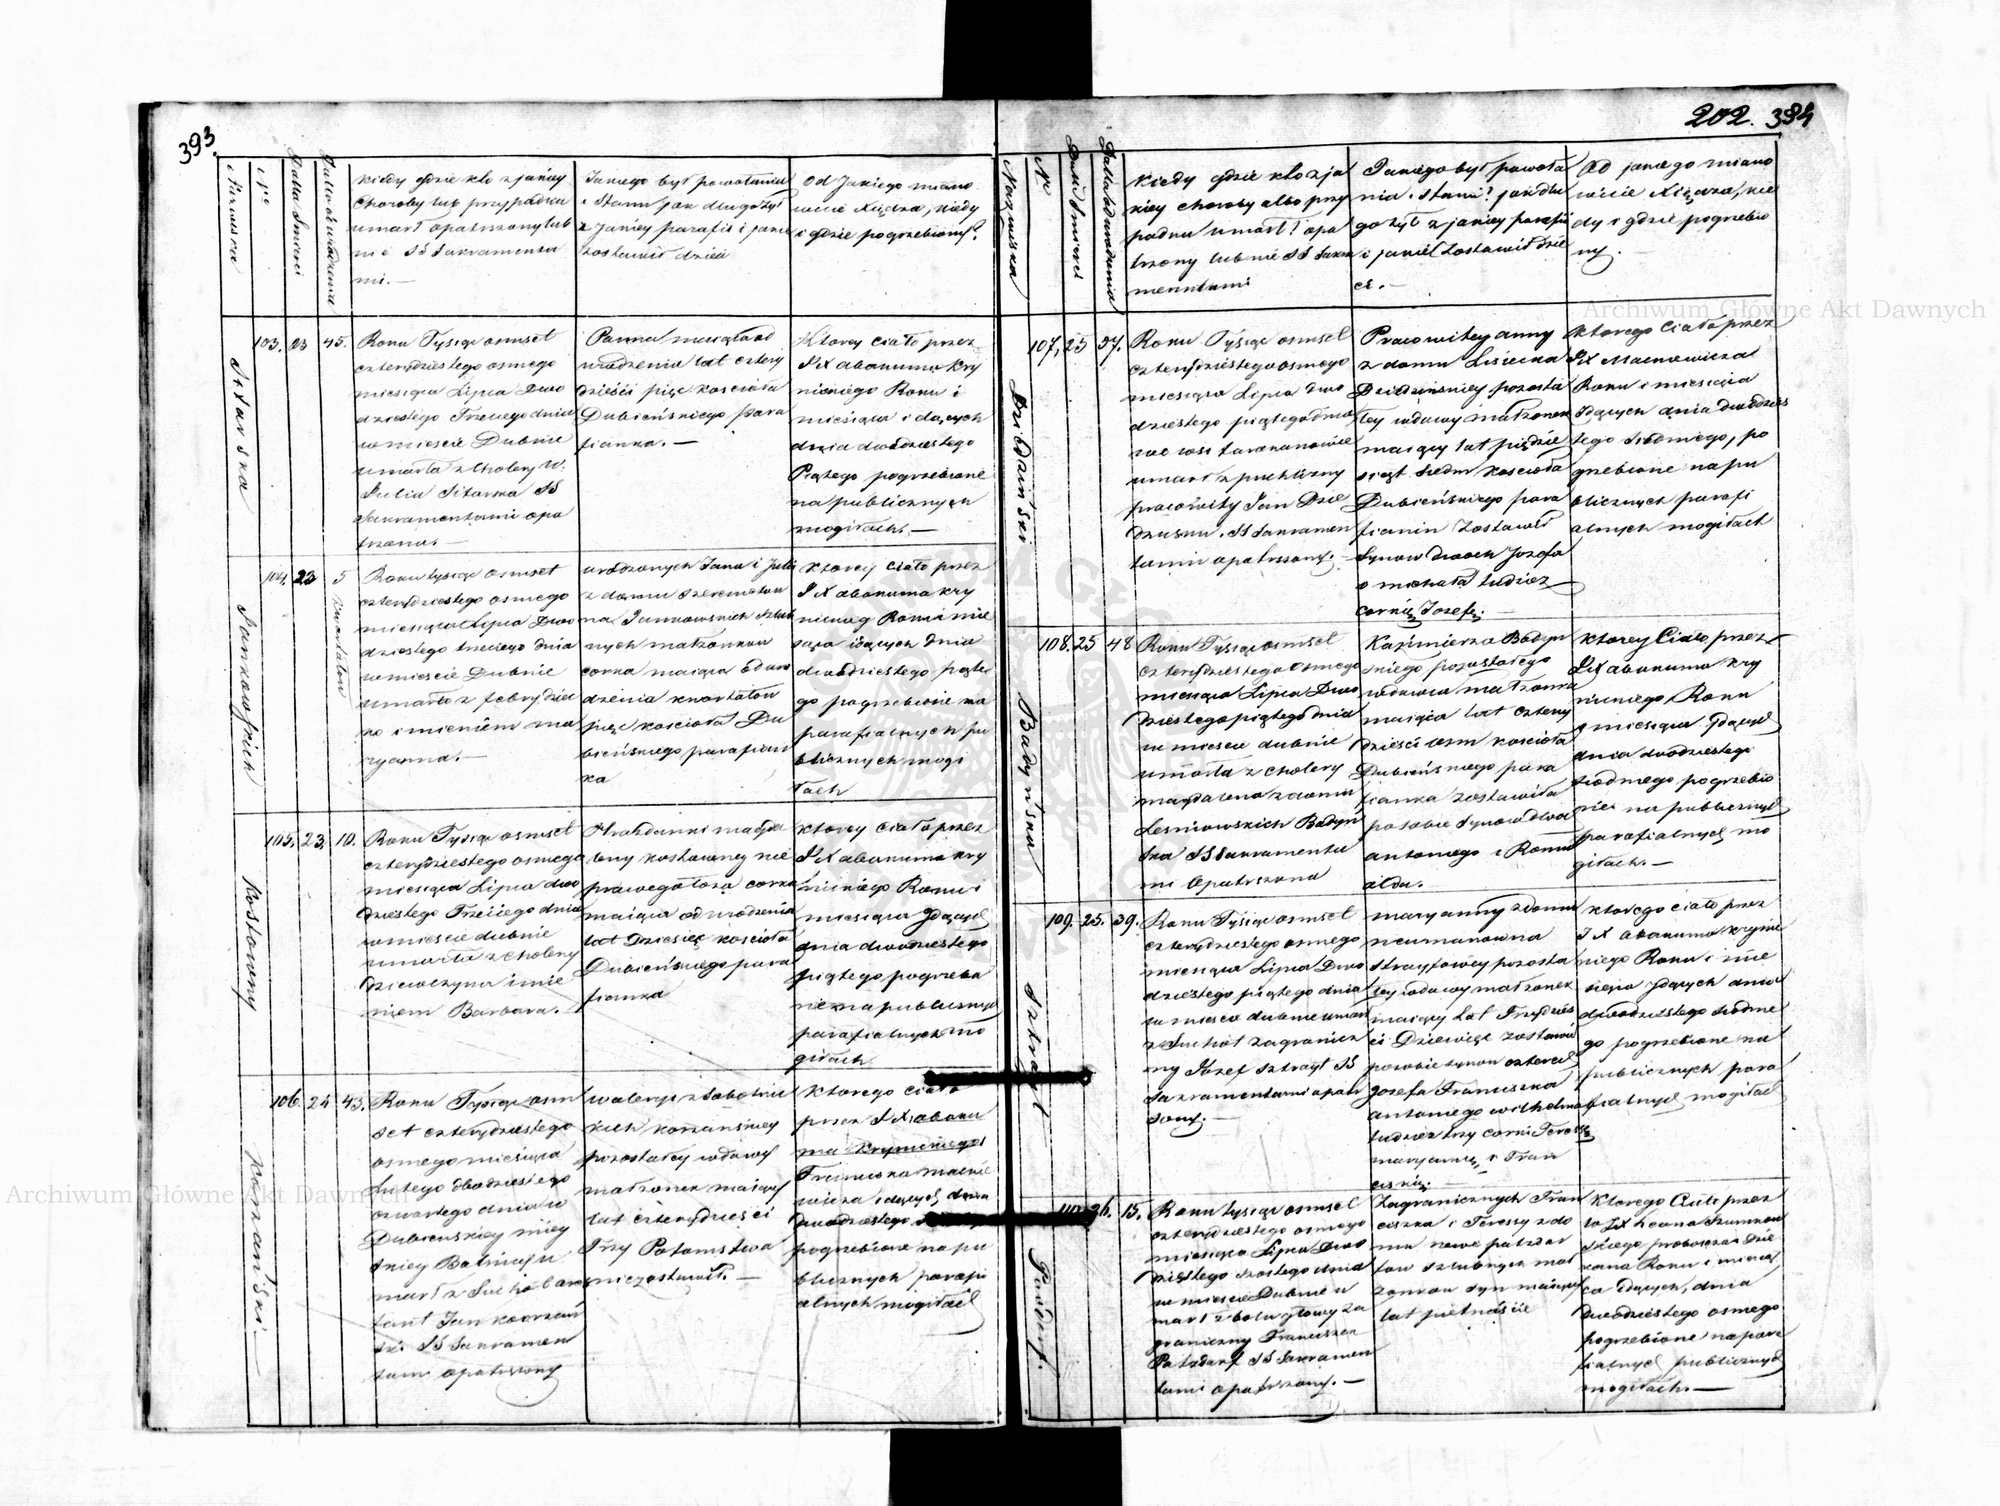 393.
Nazwiska
Nro
Datta Smierci
Datta od urodzenia
Kiedy gdzie kto z jakiey
choroby lub przypadku
umarł opatrzony lub
nie SS Sakramenta
mi.—
Jakiego był powołania
i stanu jak długo żył
z jakiey parafii i jakie
zostawił dzieci
Od Jakiego miano
wicie Xiędza, kiedy
i gdzie pogrzebiony?
Sitarska
103. 23 45.
Roku Tysiąc osmset
czterdziestego osmego
miesiąca Lipca Dwu
dziestego Trzeciego dnia
w mieście Dubnie
umarła z Cholery W.
Julia Sitarska SS
Sakramentami opa
trzona.—
Panna maiąca od
urodzenia lat cztery
dzieści pięć kościoła
Dubieńskiego para
fianka.—
Ktorey ciało przez
JX abakuma Kry
nickiego Roku i
miesiąca idących
dnia dwudziestego
Piątego pogrzebione
na publicznych
mogiłach.—
Jankowskich
104. 23 5 kwartałow
Roku tysiąc osmset
czterdziestego osmego
miesiąca Lipca Dwu
dziestego trzeciego dnia
w mieście Dubnie
umarło z febry dziec
ko imieniem ma
ryanna.—
urodzonych Jana i Julii
z domu
na Jankowskich szlub
nych małżonkow
corka maiąca od uro
dzenia kwartałow
pięc kościoła Du
bieńskiego parafian
ka
ktorey ciało przez
JX abakuma kry
nickieg Roku i mie
siąca idących dnia
dwudziestego piąte
go pogrzebione na
parafialnych pu
blicznych mogi
łach
Kostowny
105. 23. 10.
Roku Tysiąc osmset
czterdziestego osmego
miesiąca Lipca dwu
dziestego Trzeciego dnia
w mieście dubnie
umarła z cholery
dziewczyna imie
niem Barbara.
magda
leny kostowney nie
prawego łoża corka
maiąca od urodzenia
lat Dziesięć kościoła
Dubieńskiego para
fianka
ktorey ciało przez
JX abakuma kry
nickiego Roku i
miesiąca Jdących
dnia dwudziestego
piątego pogrzeba
ne na publicznych
parafialnych mo
giłach
Korzański.
106. 24 43.
Roku Tysiąc osm
set czterdziestego
osmego miesiąca
Lutego dwudziestego
czwartego dnia w
Dubienskiey miey
skiey
marł z Suchot
Jan korzań
ski SS Sakramen
tami opatrzony
waleryi z Sobotnic
kich korzańskiey
pozostałey wdowy
małżonek maiący
lat czterdzieści
Trzy Potomstwa
niezostawił.—
ktorego ciało
przez JX abaku
ma Krynickiego
Franciszka mackie
wicza idących dnia
dwudziestego
pogrzebione na pu
blicznych parafi
alnych mogiłach
202. 394
Nazwiska
Nr
Dnia Smierci
Datta od urodzenia
Kiedy gdzie kto z ja
kiey choroby albo przy
padku umarł? opa
trzony lub nie SS Sakra
mentami
Jakiego był powoła
nia i stanu? jak dłu
go żył z jakiey parafii
i jakie zostawił dzie
ci.—
Od jakiego miano
wicie Xiędza, kie
dy i gdzie pogrzebio
ny.—
107. 25 57.
Roku Tysiąc osmset
czterdziestego osmego
miesiąca Lipca dwu
dziestego piątego dnia
we wsi tarakanowie
umarł z puchliny
pracowity Jan Dzie
SS Sakramen
tami opatrzony.
Pracowitey anny
z domu Lisiecka
pozosta
łey wdowy małżonek
maiący lat pięćdzie
siąt siedm kościoła
Dubieńskiego para
fianin zostawił
synow dwoch Jozefa
i michała tudzież
corkię Jozefę.—
ktorego ciało przez
JX Mackiewicza
Roku i miesiąca
idących dnia dwudzies
tego siodmego, po
grzebione na pu
blicznych parafi
alnych mogiłach
Badyńska
108. 25 48
Roku Tysiąc osmset
czterdziestego osmego
miesiąca Lipca Dwu
dziestego piątego dnia
w mieście dubnie
umarła z cholery
magdalena z domu
Lesniowskich Badyń
ska SS Sakramenta
mi opatrzona
Kazimierza Badyń
skiego pozostałego
wdowca małżonka
maiąca lat cztery
dzieści osm kościoła
Dubieńskiego para
fianka zostawiła
po sobie synow dwu
antoniego i Romu
alda.
ktorey Ciało przez
JX abakuma kry
nickiego Roku
i miesiąca Jdących
dnia dwudziestego
siodmego pogrzebio
ne na publicznych
parafialnych mo
giłach.—
Sztragl
109. 25. 39.
Roku Tysiąc osmset
czterdziestego osmego
miesiąca Lipca Dwu
dziestego piątego dnia
w mieście dubnie umarł
z Suchot zagranicz
ny Jozef Sztragl SS
Sakramentami opatr
zony.—
maryanny z domu
neumanowna
pozosta
łey wdowy małżonek
maiący lat Trzydzieś
ci Dziewięc zostawił
po sobie synow czterech
Jozefa Franciszka
antoniego wilhelma
tudzież trzy corki Teressę
maryannę, i Fran
ciszkę.
ktorego ciało przez
JX abakuma krynic
kiego Roku i mie
siąca Jdących dnia
dwudziestego siodme
go pogrzebione na
publicznych para
fialnych mogiłach
110. 26. 15.
Roku tysiąc osmset
czterdziestego osmego
miesiąca Lipca Dwu
dziestego szostego dnia
w mieście Dubnie u
marł z bolu głowy za
graniczny Franciszek
SS Sakramen
tami opatrzony.—
Zagranicznych Fran
ciszka i Teressy z do
mu
szlubnych mał
żonkow syn maiący
lat pietnaście
Ktorego Ciało przez
skiego proboszcza Dzie
kana Roku i miesią
ca idących, dnia
dwudziestego osmego
pogrzebione na para
fialnych publicznych
mogiłach.—
Archiwum Główne Akt Dawnych
Archiwum Główne Akt Dawnych